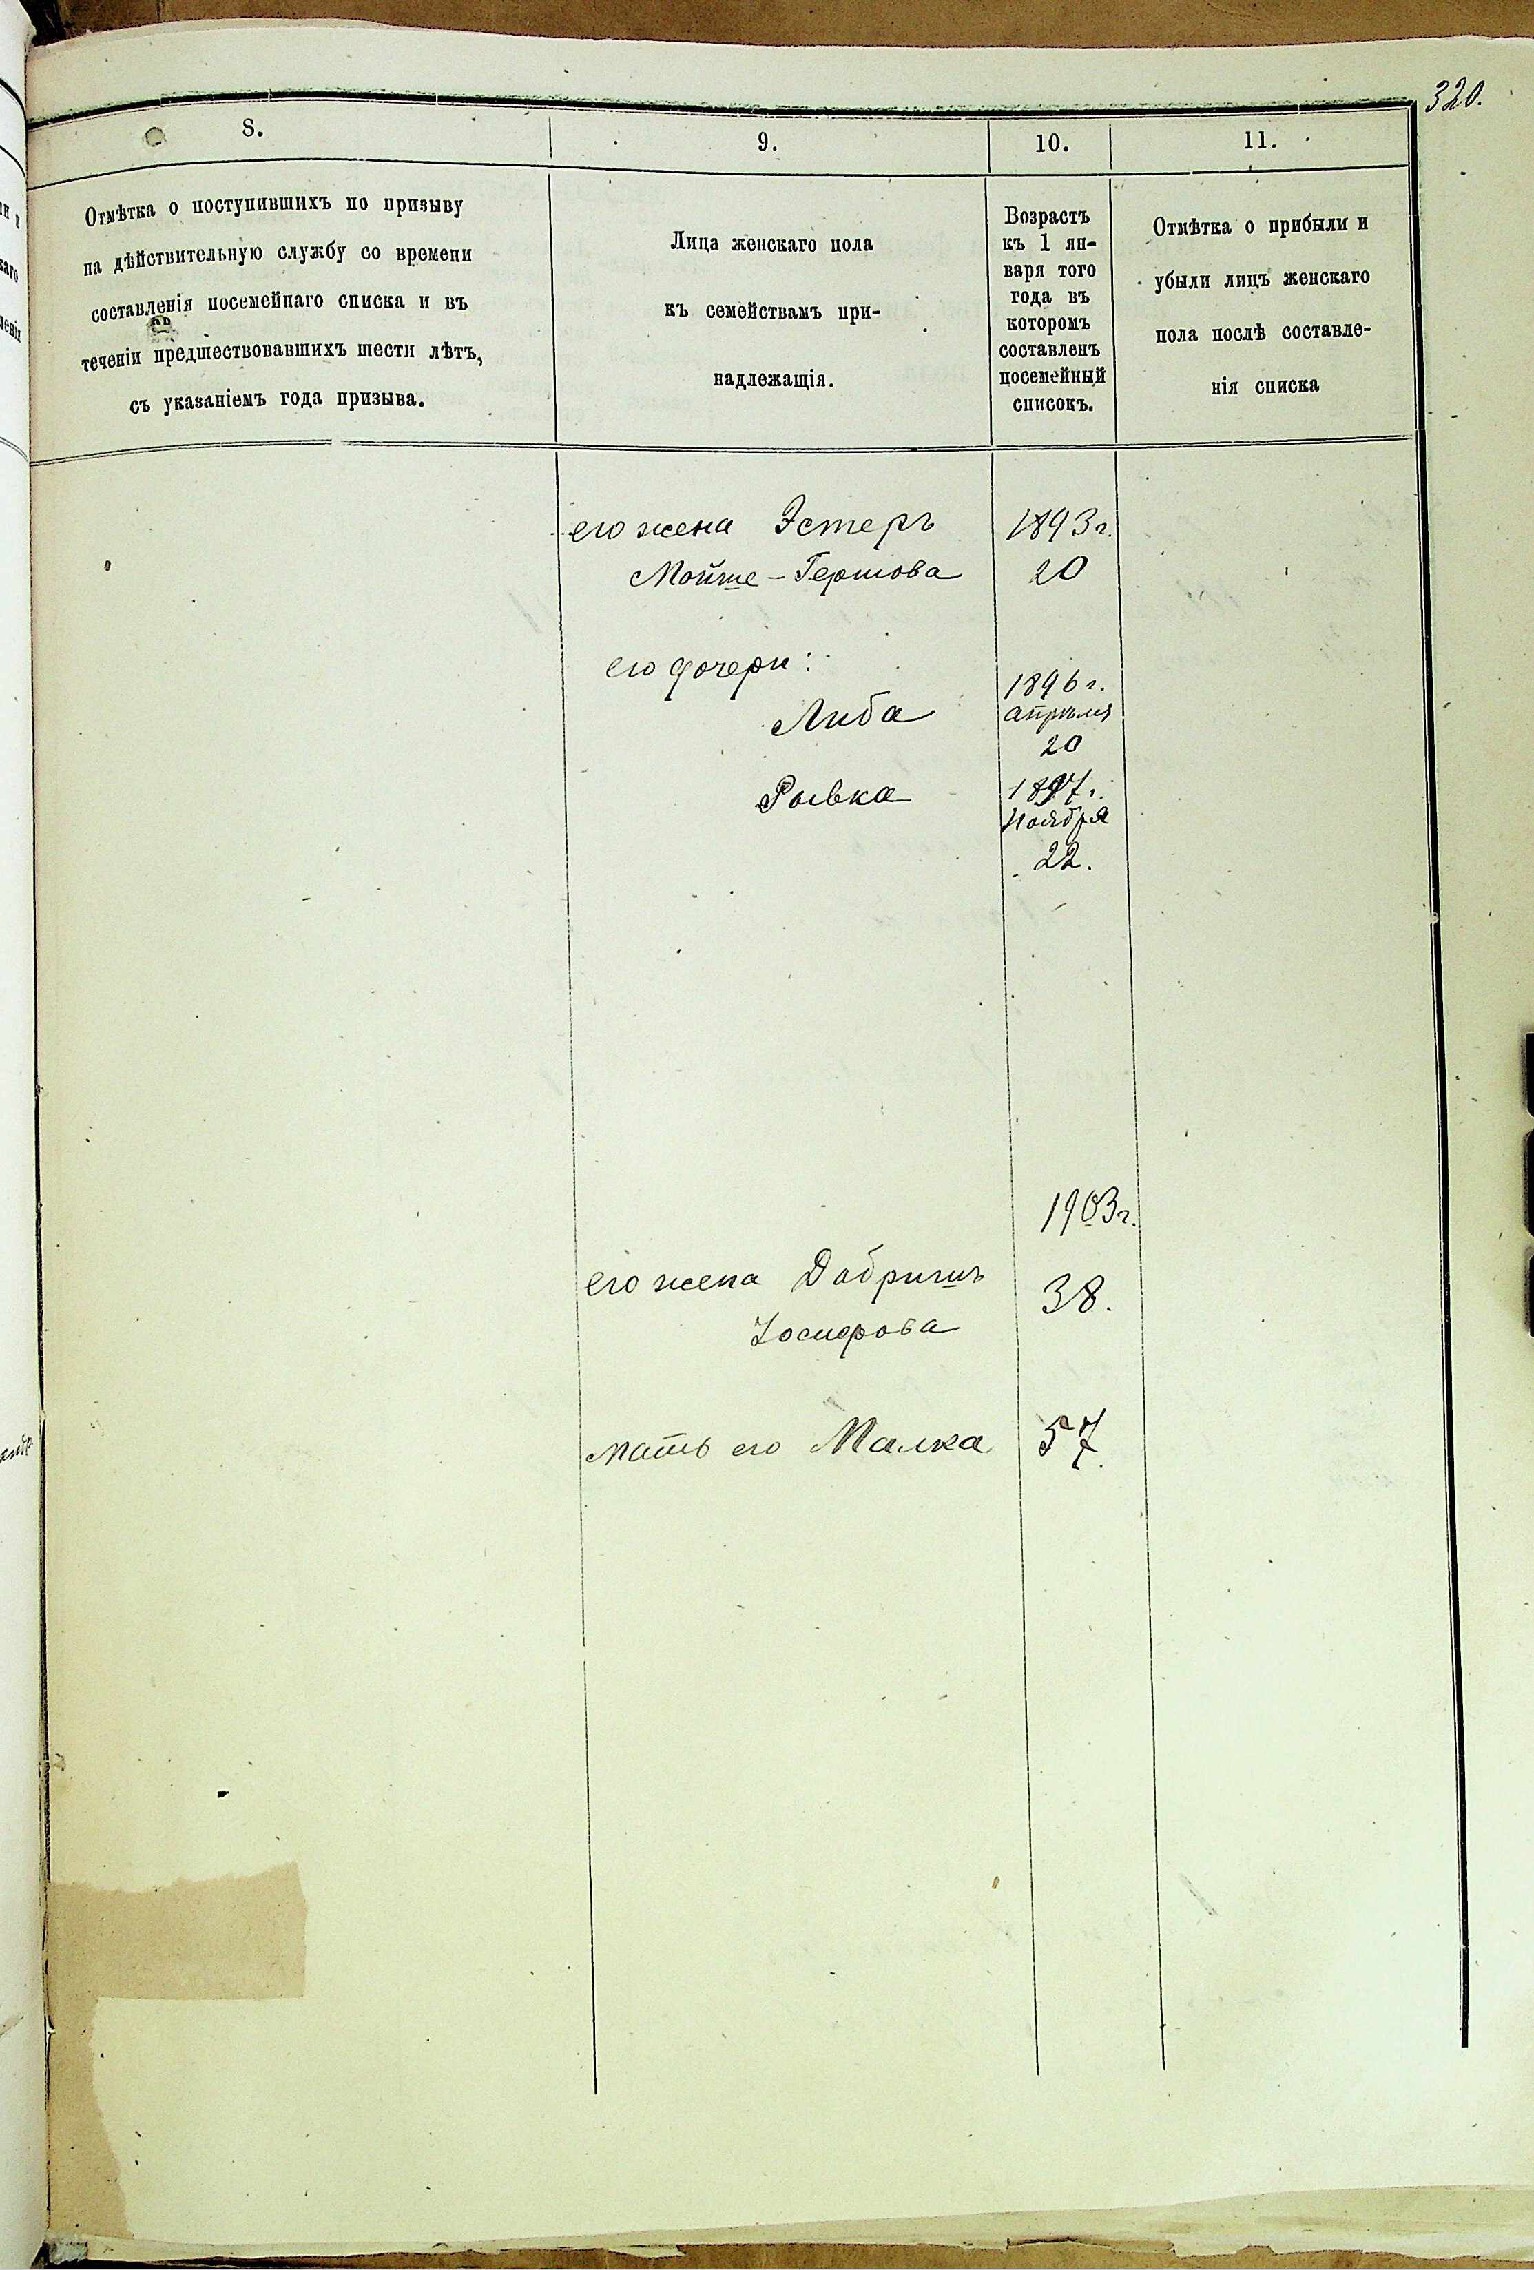 320.
8.
9.
10.
11.
Отмѣтка о поступившихъ по призыву
на дѣйствительную службу со времени
составленія посемейнаго списка и въ
теченіи предшествовавшихъ шести лѣтъ,
съ указаніемъ года призыва.
Лица женскаго пола
къ семействамъ при-
надлежащія.
Возрастъ
къ 1 ян-
варя того
года въ
которомъ
составленъ
посемейный
списокъ.
Отмѣтка о прибыли и
убыли лицъ женскаго
пола послѣ составле-
нія списка
его жена Эстеръ 1893 г.
Мойше-Гершова 20
его дочери:
1896 г.
Либа апрѣля
20
Рывка 1897 г.
Ноября
22.
1903 г.
его жена Добришъ 38.
Іосифова
мать его Малка 57.